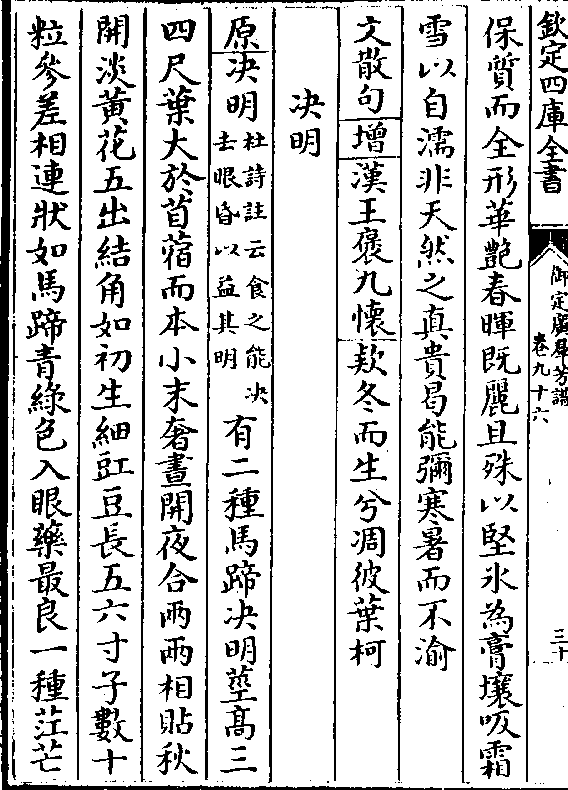 欽定四庫全書
御定廣羣芳譜
卷九十六
三十
保質而全形華艶春暉既麗且殊以堅氷為膏壤吸霜
雪以自濡非天然之真貴曷能彌寒暑而不渝
文散句增漢王褒九懷欵冬而生兮凋彼葉柯
决明
原决明杜詩註云食之能决去眼昏以益其明有二種馬蹄决明莖髙三
四尺葉大於苜蓿而本小末奢晝開夜合兩兩相貼秋
開淡黃花五出結角如初生細豇豆長五六寸子數十
粒參差相連狀如馬蹄青綠色入眼藥最良一種茳芒